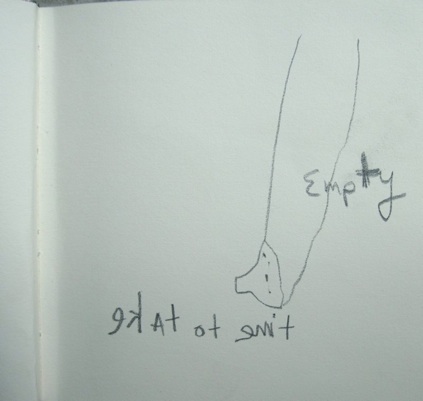 Empty
time to tAke